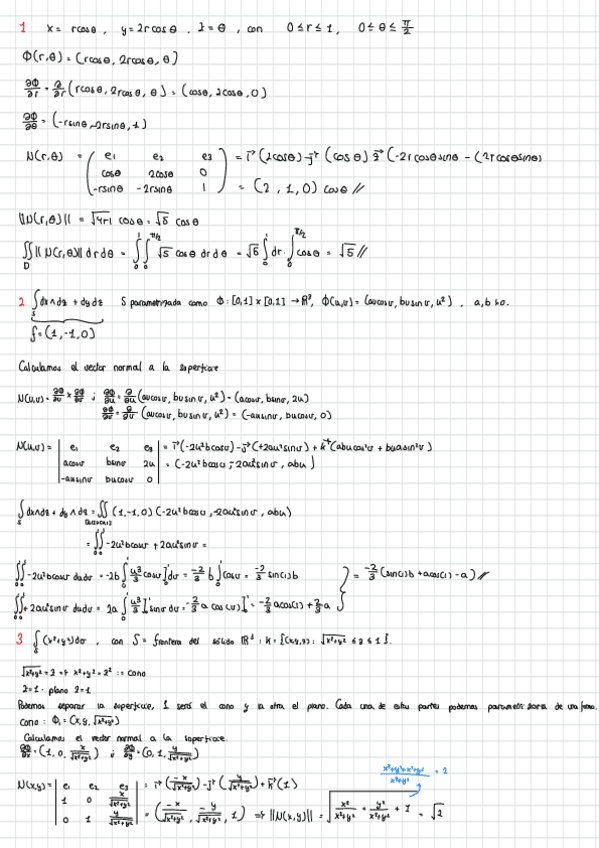 1 x = rcosθ, y = 2rcosθ, z = θ, con 0≤r≤1, 0≤θ≤π/2
Φ(r,θ) = (rcosθ, 2rcosθ, θ)
∂Φ/∂r = ∂/∂r (rcosθ, 2rcosθ, θ) = (cosθ, 2cosθ, 0)
∂Φ/∂θ = (-rsinθ, -2rsinθ, 1)
N(r,θ) = ( e1 e2 e3 = i(2cosθ) - j(cosθ) k(-2rcosθsinθ - (2rcosθsinθ)
cosθ 2cosθ 0
-rsinθ -2rsinθ 1 ) = (2, 1, 0) cosθ //
||N(r,θ)|| = √4+1 cosθ = √5 cosθ
∬_D ||N(r,θ)|| drdθ = ∫_0^1 ∫_0^{π/2} √5 cosθ dr dθ = √5 ∫_0^1 dr · ∫_0^{π/2} cosθ = √5 //
2 ∫_S dx∧dz + dy dz S parametrizada como Φ: [0,1] x [0,1] → R³, Φ(u,v) = (aucosv, businv, u²), a,b>0.
f = (1,-1,0)
Calculamos el vector normal a la superficie
N(u,v) = ∂Φ/∂u x ∂Φ/∂v ; ∂Φ/∂u = ∂/∂u (aucosv, businv, u²) = (acosv, bsinv, 2u)
∂Φ/∂v = ∂/∂v (aucosv, businv, u²) = (-ausinv, bucosv, 0)
N(u,v) = | e1 e2 e3 | = i(-2u²bcosv) - j(+2au²sinv) + k(abucos²v + buasin²v)
acosv bsinv 2u = (-2u²bcosv, -2au²sinv, abu)
-ausinv bucosv 0
∫_S dx∧dz + dy∧dz = ∬_{[0,1]x[0,1]} (1,-1,0)(-2u²bcosv, -2au²sinv, abu)
= ∬ -2u²bcosv + 2au²sinv =
∫_0^1 ∫_0^1 -2u²bcosv dudv = -2b ∫_0^1 u³/3 cosv ]_0^1 dv = -2/3 b ∫_0^1 cosv = -2/3 sin(1)b } = -2/3 (sin(1)b + acos(1) - a) //
∫_0^1 ∫_0^1 +2au²sinv dudv = 2a ∫_0^1 u³/3 ]_0^1 sinv dv = -2/3 a cos(v) ]_0^1 = -2/3 acos(1) + 2/3 a
3 ∫_S (x²+y²)dσ, con S = frontera del sólido R³: H = {(x,y,z): √x²+y² ≤ z ≤ 1}.
√x²+y² = z → x²+y² = z² := cono
z=1 = plano z=1
Podemos separar la superficie, 1 será el cono y la otra el plano. Cada una de estas partes podemos parametrizarla de una forma.
Cono: Φ1 = (x,y,√x²+y²)
Calculamos el vector normal a la superficie.
∂Φ/∂x = (1, 0, x/√x²+y²) ; ∂Φ/∂y = (0, 1, y/√x²+y²)
x²+y²+x²+y²/x²+y² = 2
N(x,y) = | e1 e2 e3 | = i(-x/√x²+y²) - j(y/√x²+y²) + k(1)
1 0 x/√x²+y²
0 1 y/√x²+y² = (-x/√x²+y², -y/√x²+y², 1) ⇒ ||N(x,y)|| = √(x²/x²+y² + y²/x²+y² + 1) = √2